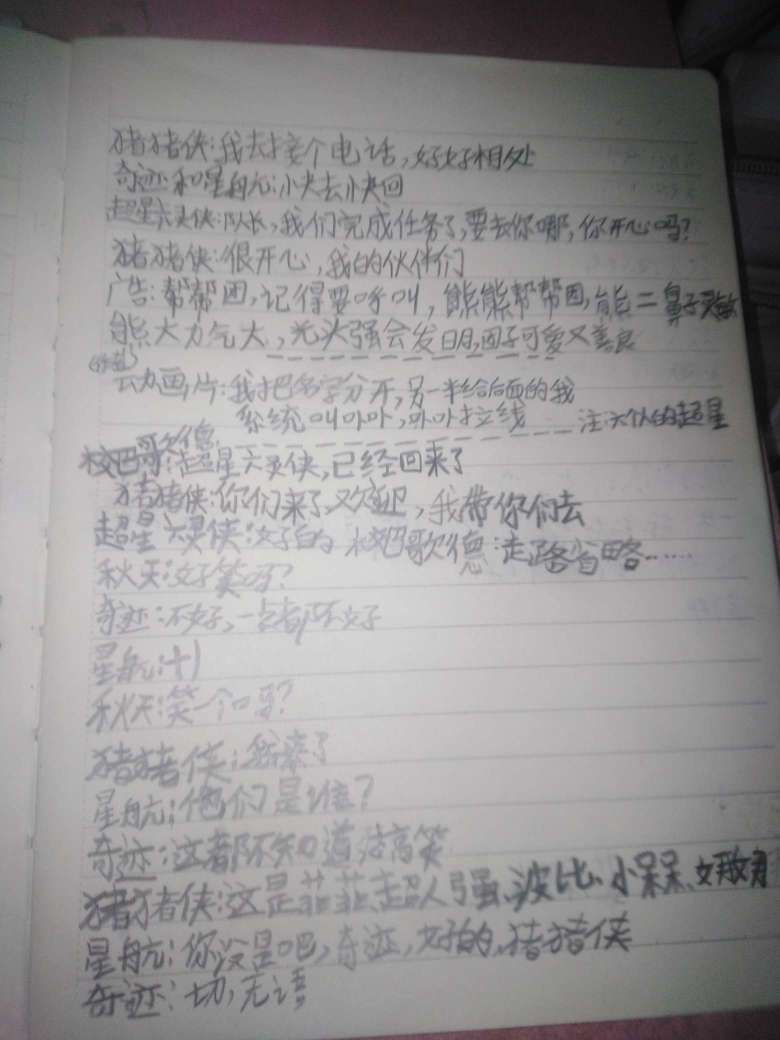 猪猪侠:我去接个电话,好好相处
奇迹和星航:小夫去小夫回
超星六灵侠:队长,我们完成任务了,要去你哪,你开心吗?
猪猪侠:很开心,我的伙伴们
广告:帮帮团,记得要呼叫,熊熊帮帮团,熊二鼻子灵敏
熊大力气大,光头强会发明,团子可爱又善良
动画片:我把名字分开,另一半给后面的我
系统叫卟卟,卟卟拉线 注:六个人的超星
校巴歌德:超星六灵侠,已经回来了
猪猪侠:你们来了,欢迎,我带你们去
超星六灵侠:好的 校巴歌德:走路省略……
秋天:好笑吗?
奇迹:不好,一点都不好
星航:+1
秋天:笑一个吗?
猪猪侠:我来了
星航:他们是谁?
奇迹:这都不知道 搞笑
猪猪侠:这是菲菲、超人强、波比、小呆呆、
星航:你没是吧,奇迹,好的,猪猪侠
奇迹:切,无语